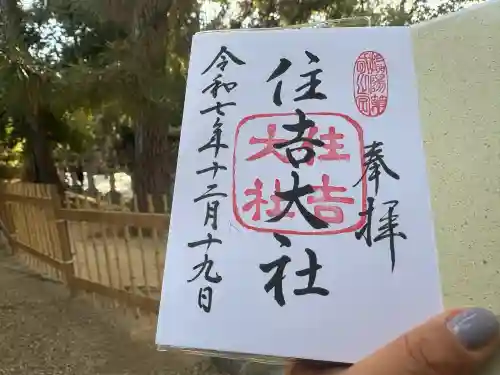 奉拝
住吉大社
住吉大社
令和七年十二月十九日